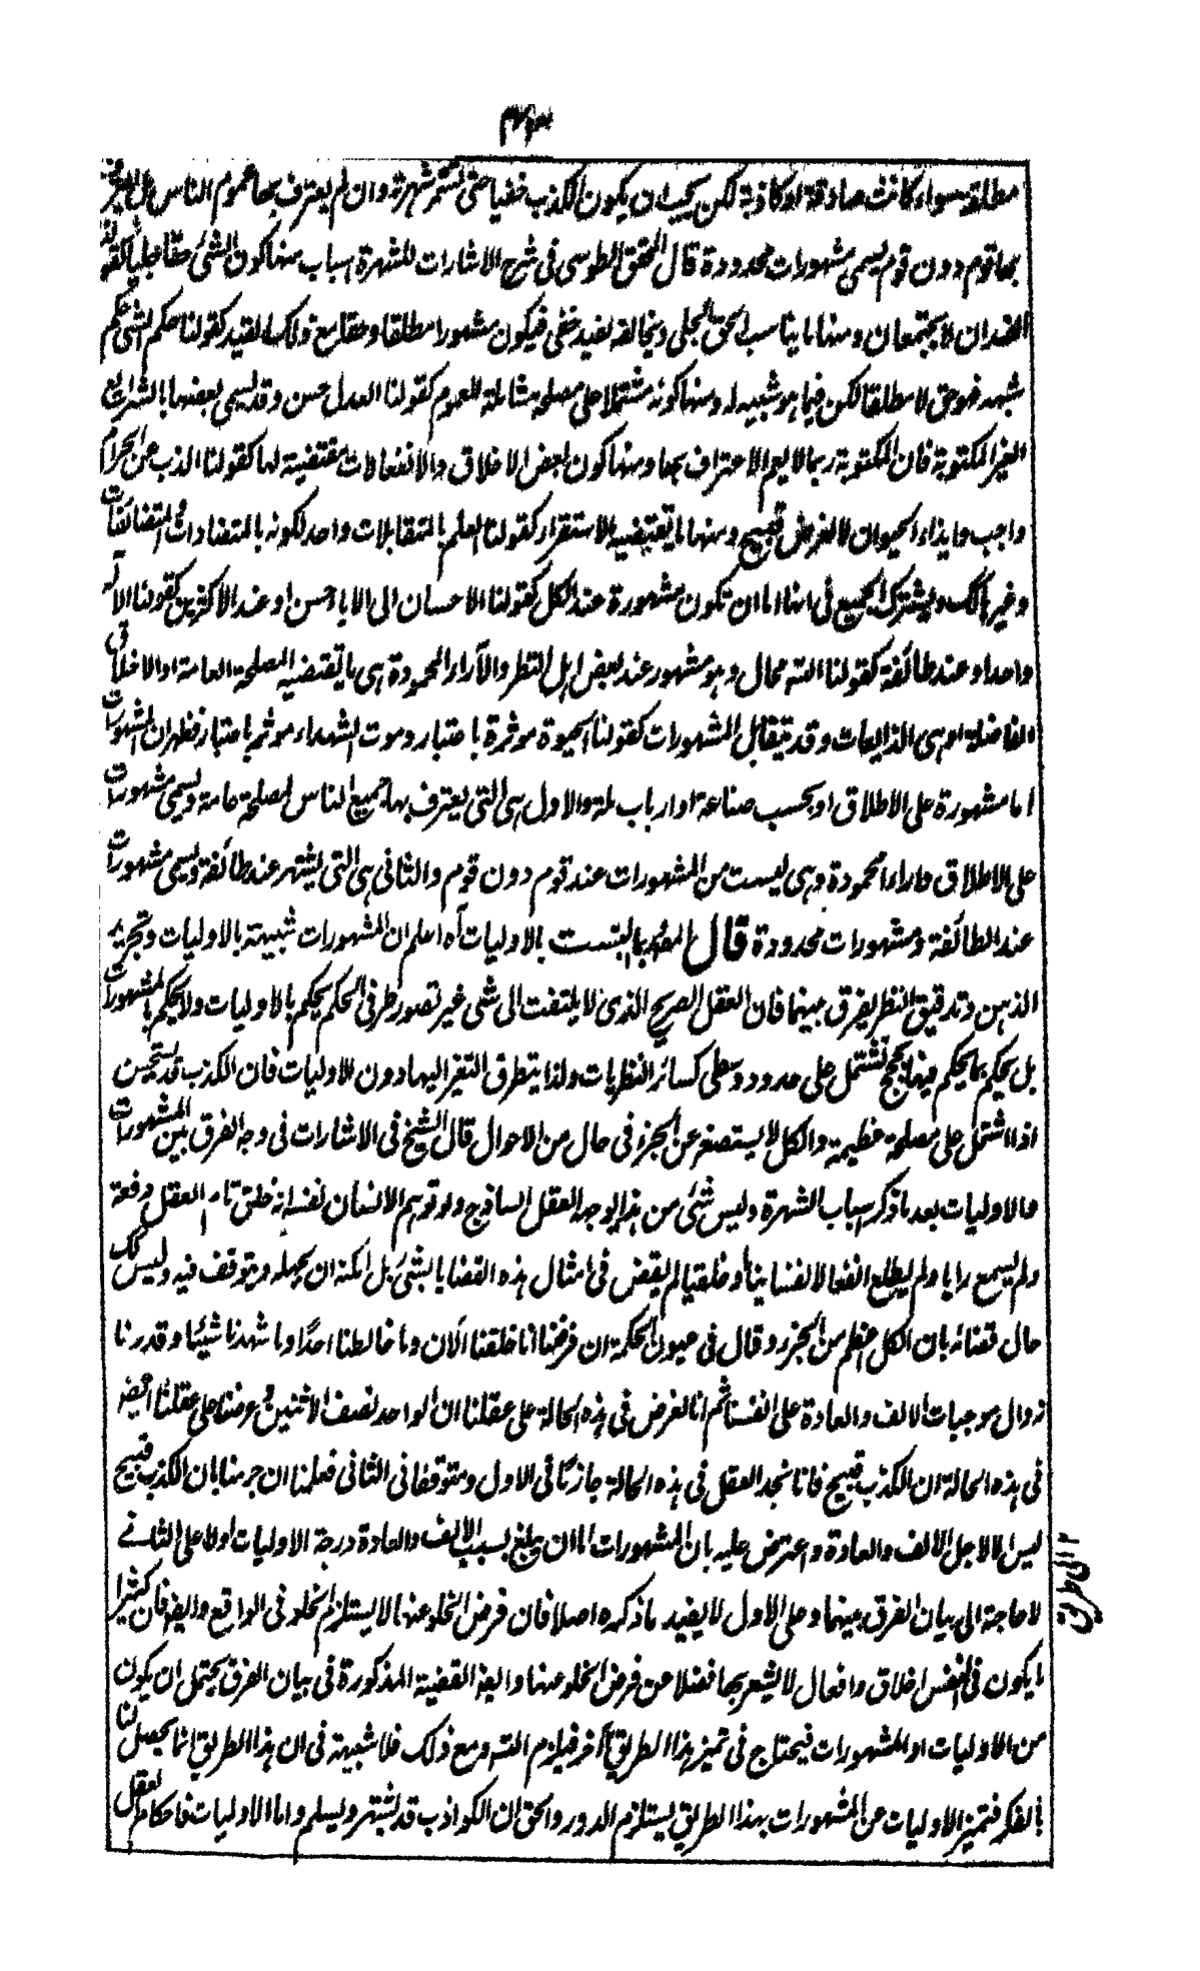 مطلقة سواء كانت صادقة او كاذبة لكن يجب ان يكون الكذب خفيا حتى تستمر شهرته وان لم يعترف بها عموم الناس بل يعترف
بها قوم دون قوم يسمى مشهورات محدودة قال المحقق الطوسى فى شرح الاشارات للشهرة اسباب منها كون الشئ حقا جليا كقولنا
الضدان لا يجتمعان ومنها ما يناسب الحق الجلى ويخالفه بقيد خفى فيكون مشهورا مطلقا وحقا مع ذلك القيد كقولنا حكم الشئ حكم
شبهه فهو حق لا مطلقا لكن فيما هو شبيه له ومنها كونه مشتملا على مصلحة شاملة للعموم كقولنا العدل حسن وقد يسمى بعضها بالشرائع
الغير المكتوبة فان المكتوبة ربما لا يعم الاعتراف بها ومنها كون بعض الاخلاق والانفعالات مقتضية لها كقولنا الذب عن الحرام
واجب وايذاء الحيوان لا لغرض قبيح ومنها ما يقتضيه الاستقراء كقولنا العلم بالمتقابلات واحد لكونه بالمتضادات والمتضائفات
وغيرها كك ويشترك الجميع فى انها اما ان تكون مشهورة عند الكل كقولنا الاحسان الى الاباء حسن او عند الاكثرين كقولنا الاله
واحد او عند طائفة كقولنا التسه محال وهو مشهور عند بعض اهل النظر والآراء المحمودة هى ما تقتضيه المصلحة العامة او الاخلاق
الفاضلة او هى الذايعات وقد تتقابل المشهورات كقولنا الحيوة موثرة باعتبار وموت الشهداء موثر باعتبار فظهر ان المشهورات
اما مشهورة على الاطلاق او بحسب صناعة او ارباب ملة والاول هى التى يعترف بها جميع الناس لمصلحة عامة ويسمى مشهورات
على الاطلاق واراء محمودة وهى ليست من المشهورات عند قوم دون قوم والثانى هى التى يشتهر عند طائفة ويسمى مشهورات
عند الطائفة ومشهورات محدودة قال المصه ربما التبست بالاوليات آه اعلم ان المشهورات شبيهة بالاوليات وتجريد
الذهن وتدقيق النظر يفرق بينهما فان العقل الصريح الذى لا يلتفت الى شئ غير تصور طرفى الحكم يحكم بالاوليات ولا يحكم بالمشهورات
بل يحكم بما يحكم فيها بحجج تشتمل على حدود وسطى كسائر النظريات ولذا يتطرق التغير اليها دون الاوليات فان الكذب قد يستحسن
اذا اشتمل على مصلحة عظيمة والكل لا يستصغر عن الجزء فى حال من الاحوال قال الشيخ فى الاشارات فى وجه الفرق بين المشهورات
والاوليات بعد ما ذكر اسباب الشهرة وليس شئ من هذا يوجبه العقل الساذج ولو توهم الانسان نفسه انه خلق تام العقل دفعة
ولم يسمع رايا ولم يطلع انفعالا نفسانيا وخلقيا لم يقض فى امثال هذه القضايا بشئ بل امكنه ان يجهله ويتوقف فيه وليس كك
حال قضائه بان الكل اعظم من الجزء وقال فى عيون الحكمة ان فرضنا انا خلقنا الآن وما خالطنا احدا وما شهدنا شيئا وقدرنا
زوال موجبات الالف والعادة على انفسنا ثم انا نعرض فى هذه الحالة على عقلنا ان الواحد نصف الاثنين وعرضنا على عقلنا ايضه
فى هذه الحالة ان الكذب قبيح فانا نجد العقل فى هذه الحالة جازما فى الاول ومتوقفا فى الثانى فعلمنا ان جزمنا بان الكذب قبيح
ليس الا لاجل الالف والعادة واعترض عليه بان المشهورات اما ان يبلغ بسبب الالف والعادة درجة الاوليات اولا على الثانى
لا حاجة الى بيان الفرق بينهما وعلى الاول لا يفيد ما ذكره اصلا فان فرض الخلو عنها لا يستلزم الخلو فى الواقع وايضه فان كثيرا
ما يكون فى النفس اخلاق وافعال لا يشعر بها فضلا عن فرض الخلو عنها وايضه القضية المذكورة فى بيان الفرق يحتمل ان يكون
من الاوليات او المشهورات فيحتاج فى تميز هذا الطريق الى آخر فيلزم التسه ومع ذلك فلا شبهة فى ان هذا الطريق انما يحصل لنا
بالفكر فتميز الاوليات عن المشهورات بهذا الطريق يستلزم الدور والحق ان الكواذب قد تشتهر ويسلم واما الاوليات فاحكام العقل